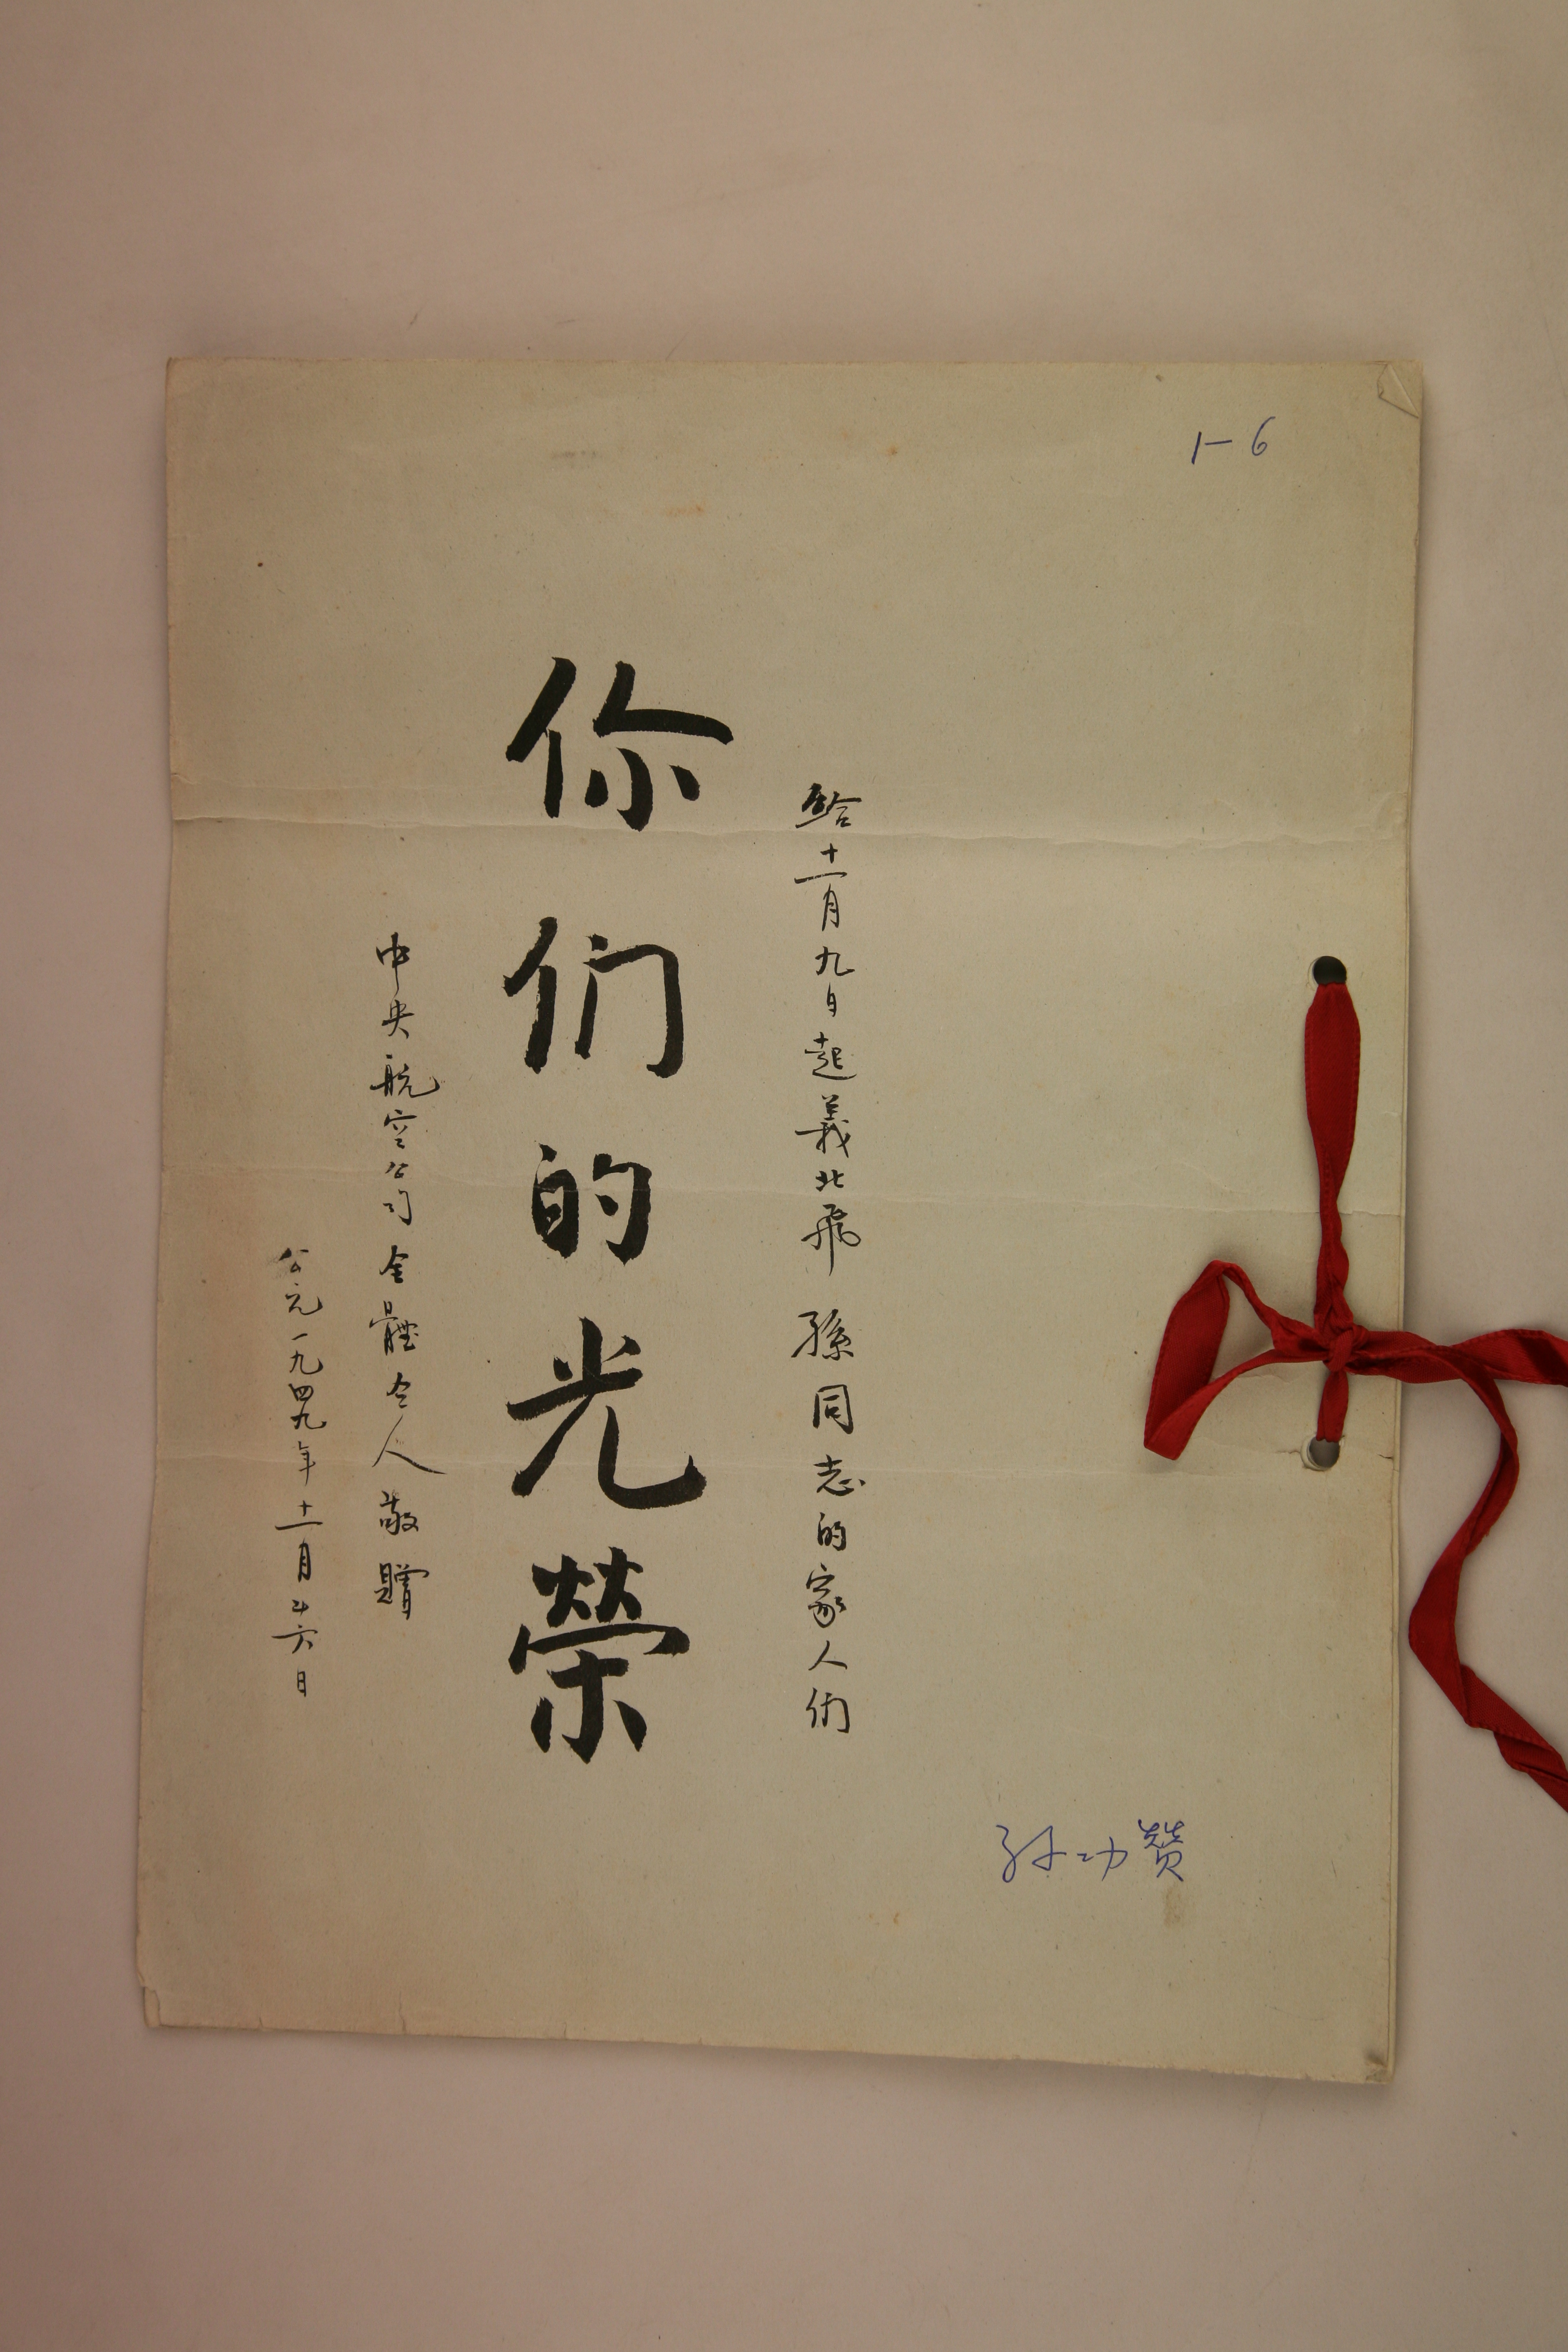 1-6
給十一月九日起義北飛 孫同志的家人們
你们的光榮
中央航空公司全體仝人敬贈
公元一九四九年十一月廿六日
孙功赞